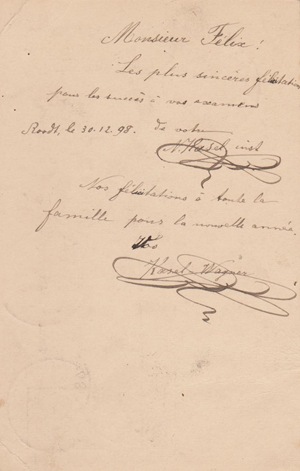 Monsieur Félix!
Les plus sincères félicitations
pour les succès à vos examens
Roodt, le 30.12.98. de votre
N. Kasel inst
Nos félicitations à toute la
famille pour la nouvelle année.
Kasel-Wagner